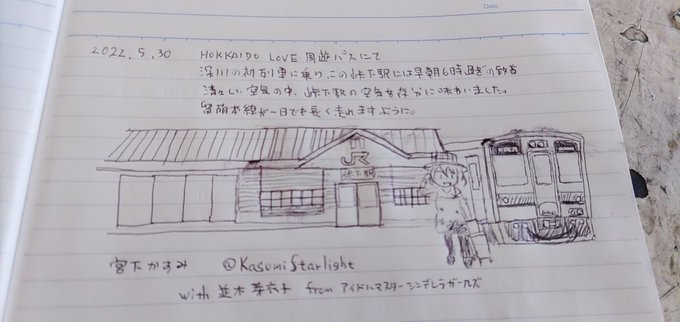 Date
2022.5.30 HOKKAIDO LOVE 周遊パスにて
深川の初列車に乗り、この峠下駅には早朝6時過ぎの到着
清々しい空気の中、峠下駅の空気を存分に味わいました。
留萌本線が一日でも長く走れますように。
JR
峠下駅
宮下かすみ @KasumiStarlight
with 並木芽衣子 from アイドルマスターシンデレラガールズ